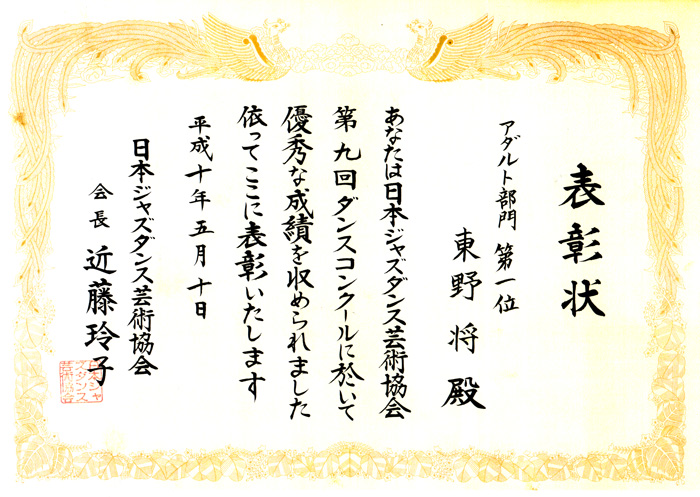 表彰状
アダルト部門 第一位
東野将殿
あなたは日本ジャズダンス芸術協会
第九回ダンスコンクールに於いて
優秀な成績を収められました
依ってここに表彰いたします
平成十年五月十日
日本ジャズダンス芸術協会
会長 近藤玲子
日本ジャ
ズダンス
芸術協会